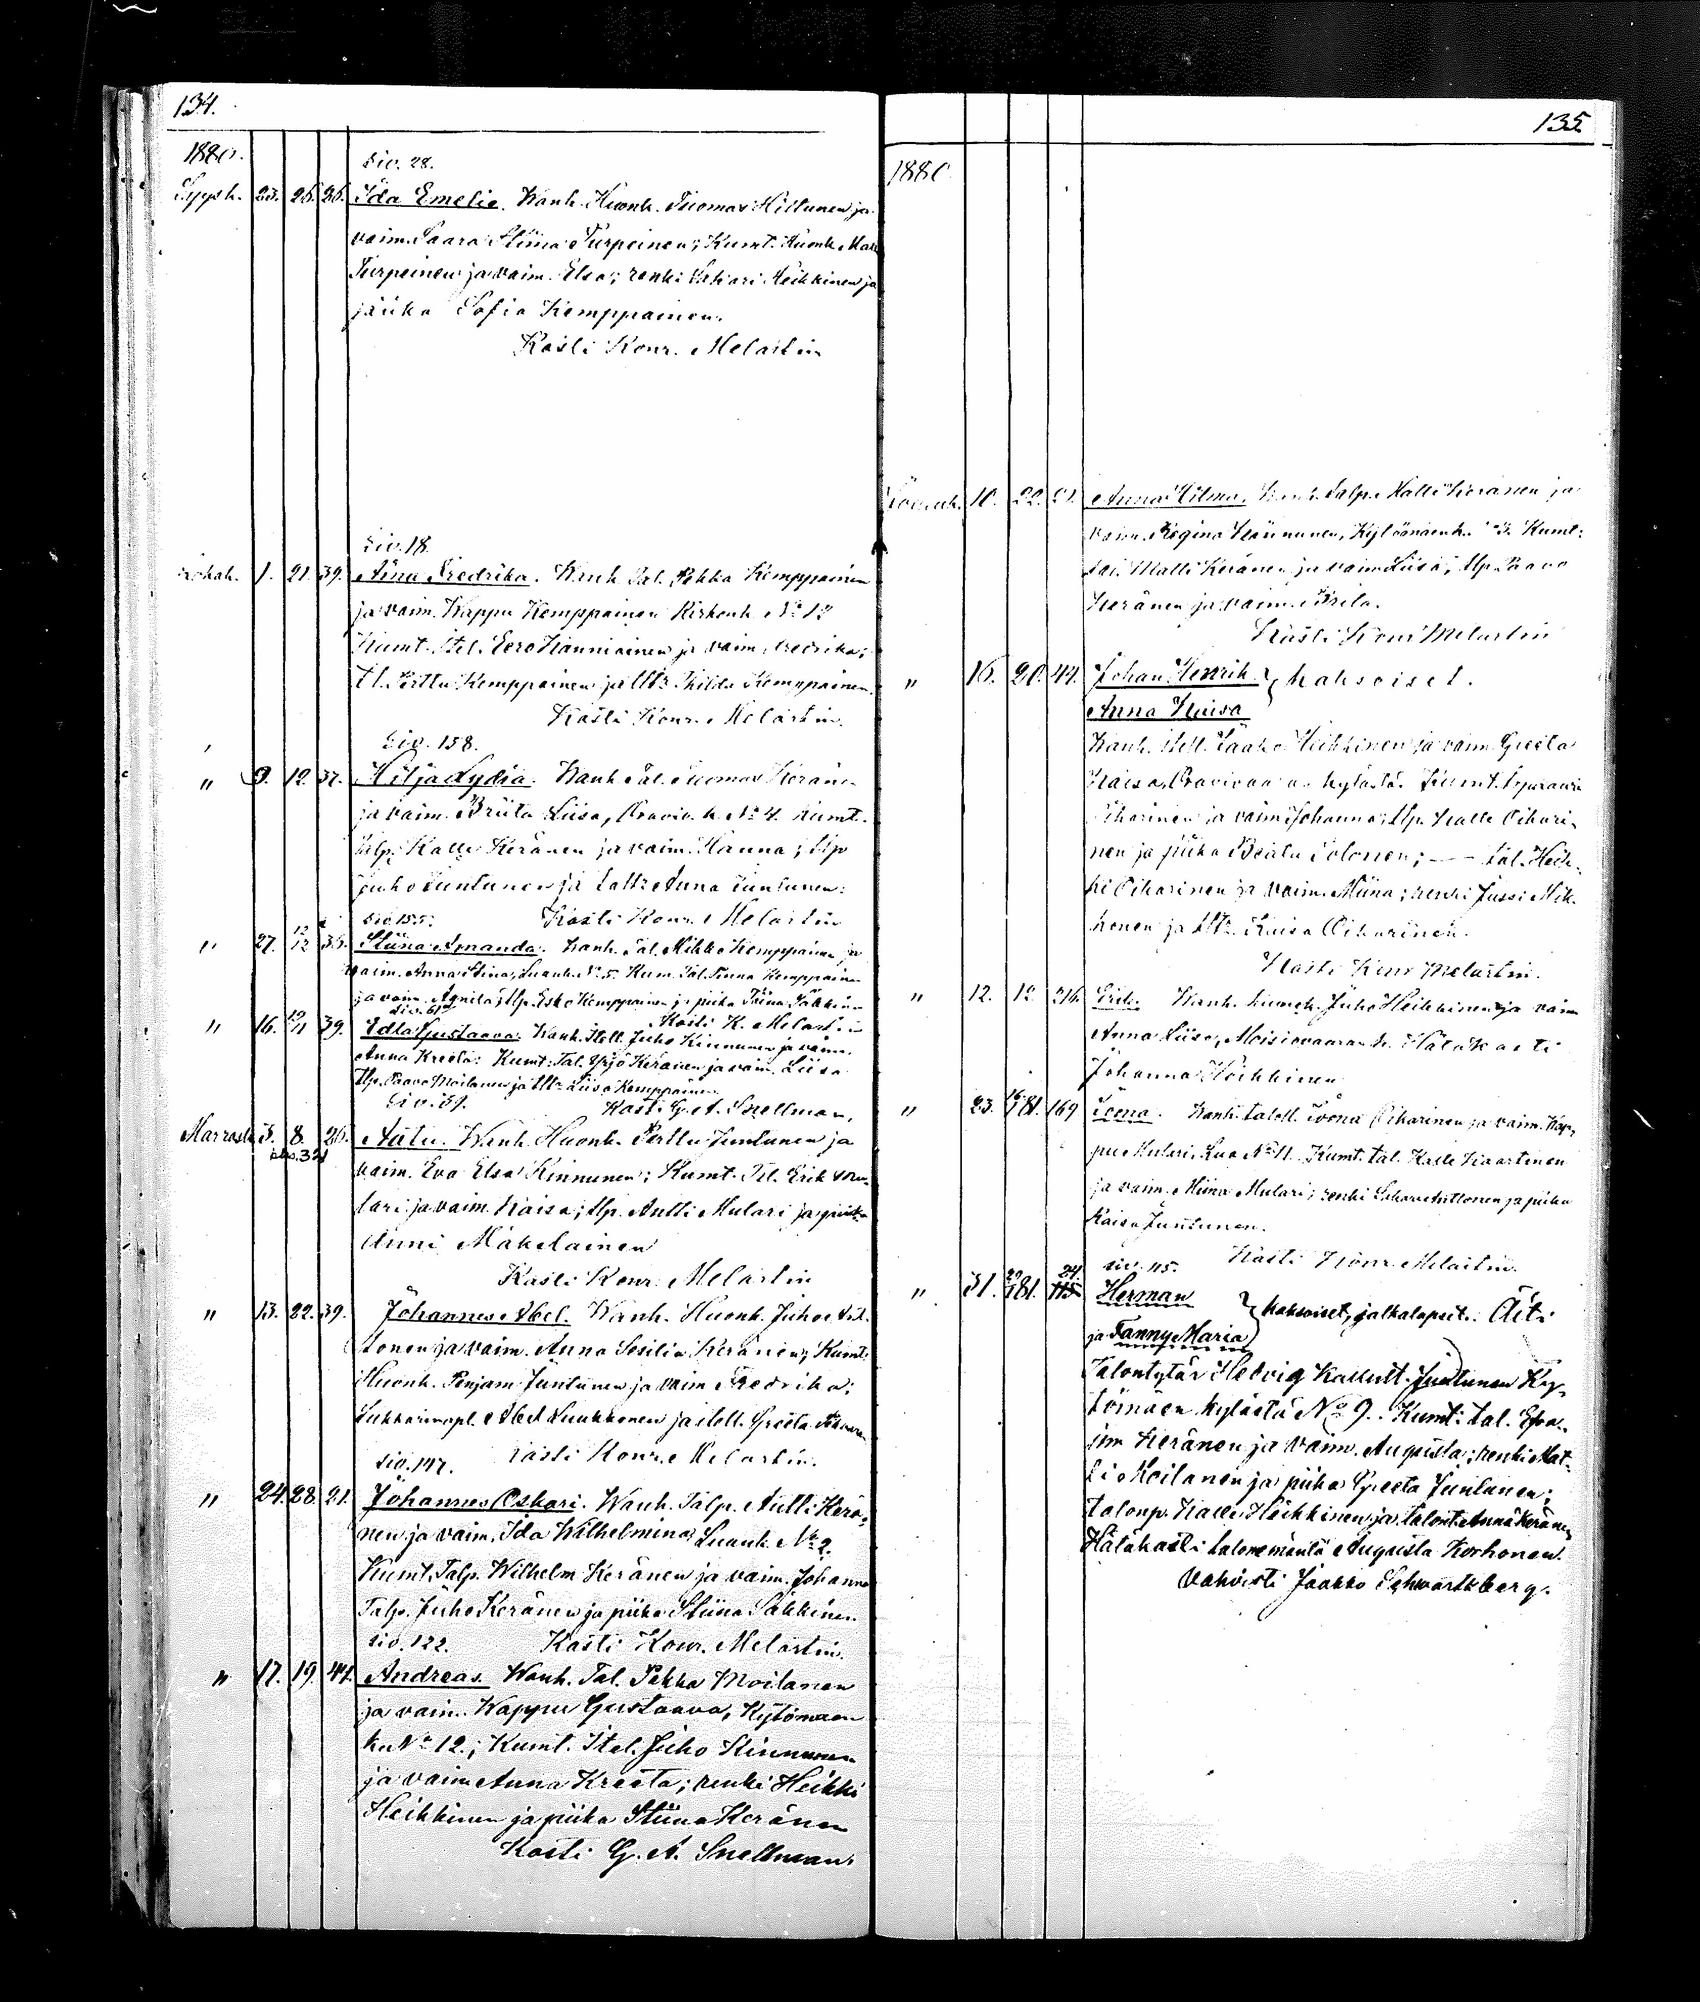 134.
1880.
siv. 28.
Syysk. 23. 26. 26. Ida Emelie. Wanh. Huonk. Tuomas Hiltunen ja
vaim. Saara Stiina Turpeinen; Kumt. Huonk. Matti
Turpeinen ja vaim. Elsa; renki Sakari Heikkinen ja
piika Sofia Kemppainen.
Kasti Konr. Melartin
siv. 18.
Lokak. 1. 21. 39. Aina Fredrika. Wanh. Tal. Pekka Kemppainen
ja vaim. Wappu Kemppainen Kirkonk. No 12
Kumt. Itel. Eero Hanniainen ja vaim. Fredrika;
tl. Perttu Kemppainen ja ttr Hilda Kemppainen.
Kasti Konr. Melartin.
siv. 158.
" 9. 12. 37. Hilja Lydia. Wanh. Tal. Tuomas Keränen
ja vaim. Briita Liisa, Oraviv. k. No 4. Kumt.
talp. Kalle Keränen ja vaim. Hanna; tlp
Juho Juntunen ja taltr Anna Juntunen:
siv. 155. Kasti Konr. Melartin
" 27. 12/12 35. Stiina Amanda. Wanh. Tal. Mikko Kemppainen ja
vaim. Anna Stina, Luank. No 5. Kum. Tal. Kemppainen
ja vaim. Agnita; tlp. Esko Kemppainen ja piika
Kasti K. Melartin
" 16. 39. Edla Gustaava. Wanh. Itell. Juho Kinnunen ja vaim.
Anna Kreeta: Kumt: Tal. Yrjö Keränen ja vaim. Liisa
tlp. Paavo Moilanen ja ttr Liisa Kemppainen.
siv. 39. Kasti G. A. Snellman,
Marrask. 3. 8. 26. Aatu. Wanh. Huonk. Perttu Juntunen ja
vaim. Eva Elsa Kinnunen; Kumt. Tal. Erik Mu-
lari ja vaim. Kaisa; tlp. Antti Mulari ja piika
Anni Mäkeläinen
Kasti Konr. Melartin
" 13. 22. 39. Johannes Abel. Wanh. Huonk. Juho Ant-
tonen ja vaim. Anna Sesilia Keränen; Kumt.
Huonk. Penjam Juntunen ja vaim Fredrika;
Abel Luukkonen ja itell. Greeta
siv. 147. Kasti Konr. Melartin.
" 24. 28. 21. Johannes Oskari. Wanh. Talp. Antti Kerä-
nen ja vaim. Ida Wilhelmina Luank. No 2.
Kumt. Talp. Wilhelm Keränen ja vaim. Johanna
Talp. Juho Keränen ja piika Stiina Säkkinen.
siv. 122. Kasti Konr. Melartin.
" 17. 19. 41. Andreas. Wanh. Tal. Pekka Moilanen
ja vaim. Wappu Gustaava, Kytömäen
k. No 12.; Kumt. Itel. Juho Kinnunen
ja vaim Anna Kreeta; renki Heikki
Heikkinen ja piika Stiina Keränen
Kasti G. A. Snellman.
135.
1880
Jouluk. 10. 22. 21. Anna Hilma. Wanh. Talp. Matti Keränen ja
vaim. Regina Kinnunen, Kytömäen k. 3. Kumt:
tal. Matti Keränen ja vaim Liisa; tlp. Paavo
Keränen ja vaim. Brita.
Kasti Konr Melartin
" 16. 20. 44. Johan Henrik } kaksoiset.
Anna Kaisa
Wanh. itell. Jaako Heikkinen ja vaim. Greeta
Kaisa, Oravivaaran kylästä. Kumt.
Oikarinen ja vaim Johanna; tlp. Kalle Oikari-
nen ja piika Beata Tolonen; — — tal. Heik-
ki Oikarinen ja vaim. Miina; renki Jussi Mik-
konen ja ttr. Kaisa Oikarinen.
Kasti Konr Melartin.
" 12. 12. 36. Erik. Wanh. Huonek. Juho Heikkinen ja vaim
Anna Liisa, Moisiovaaran k. Hätäkasti
Johanna Heikkinen
" 23. 169 Joona. Wanh. talell. Joona Oikarinen ja vaim. Kap-
pu Mulari, Lua No 11. Kumt. tal. Kalle Kaartinen
ja vaim. Miina Mulari; renki Sakari Anttonen ja piika
Kaisa Juntunen.
siv. 45. Kasti Konr. Melartin.
" 31. 24. Herman
ja Fanny Maria } kaksoiset, jalkalapset. Äiti
Talontytär Hedvig Kallunt. Juntunen Ky-
tömäen kylästä No 9. Kumt: tal. Efra-
im Keränen ja vaim. Augusta; renki Mat-
ti Moilanen ja piika Greeta Juntunen;
talonp. Kalle Heikkinen ja talont. Anna Keränen
Hätäkasti talonemäntä Augusta Korhonen.
Vahvisti Jaakko Schwartzberg.